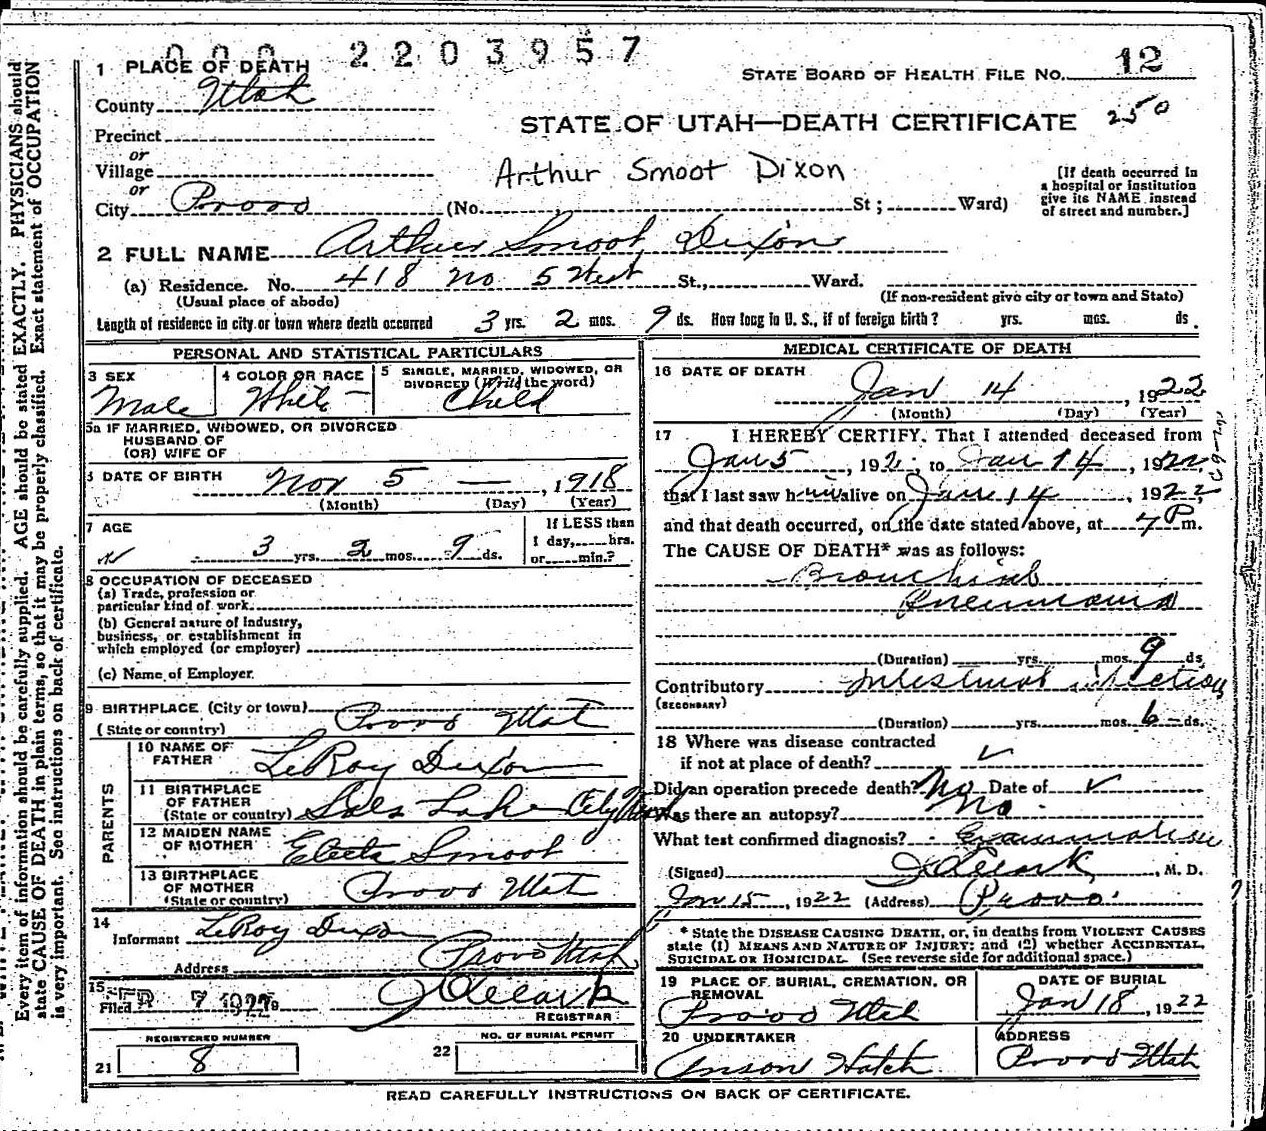 000 2203957
1 PLACE OF DEATH
STATE BOARD OF HEALTH FILE NO. 12
County Utah
250
STATE OF UTAH—DEATH CERTIFICATE
Precinct
or
Village
Arthur Smoot Dixon
or
City Provo (No. St; Ward)
[If death occurred in
a hospital or institution
give its NAME instead
of street and number.]
2 FULL NAME Arthur Smoot Dixon
(a) Residence. No. 418 No 5 West St., Ward.
(Usual place of abode)
(If non-resident give city or town and State)
Length of residence in city or town where death occurred 3 yrs. 2 mos. 9 ds. How long in U. S., if of foreign birth? yrs. mos. ds.
PERSONAL AND STATISTICAL PARTICULARS
3 SEX
Male
4 COLOR OR RACE
White
5 SINGLE, MARRIED, WIDOWED, OR
DIVORCED (Write the word)
Child
5a IF MARRIED, WIDOWED, OR DIVORCED
HUSBAND OF
(OR) WIFE OF
DATE OF BIRTH Nov 5 — , 1918
(Month) (Day) (Year)
7 AGE
3 yrs. 2 mos. 9 ds.
If LESS than
1 day, hrs.
or min.?
8 OCCUPATION OF DECEASED
(a) Trade, profession or
particular kind of work
(b) General nature of Industry,
business, or establishment in
which employed (or employer)
(c) Name of Employer
9 BIRTHPLACE (City or town)
(State or country) Provo Utah
PARENTS
10 NAME OF
FATHER LeRoy Dixon
11 BIRTHPLACE
OF FATHER
(State or country) Salt Lake City Utah
12 MAIDEN NAME
OF MOTHER Electa Smoot
13 BIRTHPLACE
OF MOTHER
(State or country) Provo Utah
14
Informant LeRoy Dixon
Address Provo Utah
15
Filed FEB 7 1922
REGISTRAR
REGISTERED NUMBER
21 8
NO. OF BURIAL PERMIT
22
MEDICAL CERTIFICATE OF DEATH
16 DATE OF DEATH
Jan 14 , 1922
(Month) (Day) (Year)
17 I HEREBY CERTIFY, That I attended deceased from
Jan 5 , 192 , to Jan 14 , 1922,
that I last saw him alive on Jan 14 , 1922,
and that death occurred, on the date stated above, at 7 P m.
The CAUSE OF DEATH* was as follows:
Bronchial
Pneumonia
(Duration) yrs. mos. 9 ds.
Contributory Intestinal infection
(SECONDARY)
(Duration) yrs. mos. 6 ds.
18 Where was disease contracted
if not at place of death?
Did an operation precede death? No Date of
Was there an autopsy? No
What test confirmed diagnosis? Examination
(Signed) , M. D.
Jan 15 , 1922 (Address) Provo
* State the DISEASE CAUSING DEATH, or, in deaths from VIOLENT CAUSES
state (1) MEANS AND NATURE OF INJURY; and (2) whether ACCIDENTAL,
SUICIDAL OR HOMICIDAL. (See reverse side for additional space.)
19 PLACE OF BURIAL, CREMATION, OR
REMOVAL
Provo Utah
DATE OF BURIAL
Jan 18 , 1922
20 UNDERTAKER
Anson Hatch
ADDRESS
Provo Utah
READ CAREFULLY INSTRUCTIONS ON BACK OF CERTIFICATE.
Every item of information should be carefully supplied. AGE should be stated EXACTLY. PHYSICIANS should
state CAUSE OF DEATH in plain terms, so that it may be properly classified. Exact statement of OCCUPATION
is very important. See instructions on back of certificate.